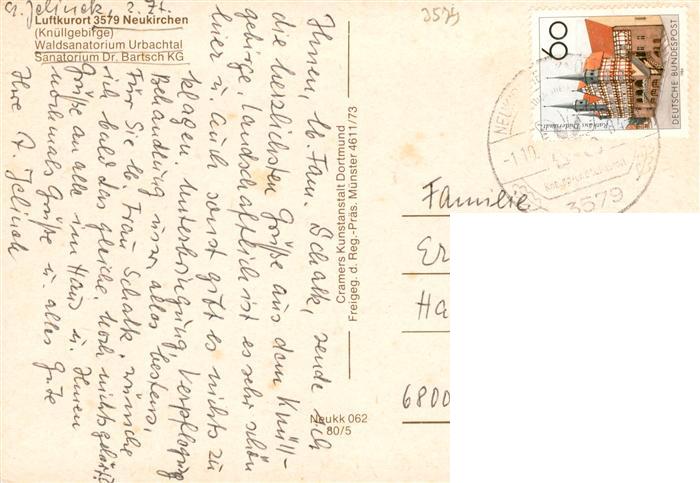 A. Jelinek, z. Zt.
Luftkurort 3579 Neukirchen
(Knüllgebirge)
Waldsanatorium Urbachtal
Sanatorium Dr. Bartsch KG
Ihnen, lb Fam. Schalk, sende ich
die herzlichsten Grüße aus dem Knüll-
gebirge. Landschaftlich ist es sehr schön
hier u. auch sonst gibt es nichts zu
klagen. Unterbringung, Verpflegung
Behandlung usw. alles bestens.
Für Sie lb. Frau Schalk, wünsche
ich bald das gleiche. Noch nichts gehört?
Grüße an alle im Haus u. Ihnen
nochmals Grüße u. alles Gute
Ihre A. Jelinek
Cramers Kunstanstalt Dortmund
Freigeg. d. Reg.-Präs. Münster 4611/73
Neukk 062
80/5
3579
60
DEUTSCHE BUNDESPOST
Rathaus Duderstadt
-1.10.
3579
Familie
Er
Ha
6800